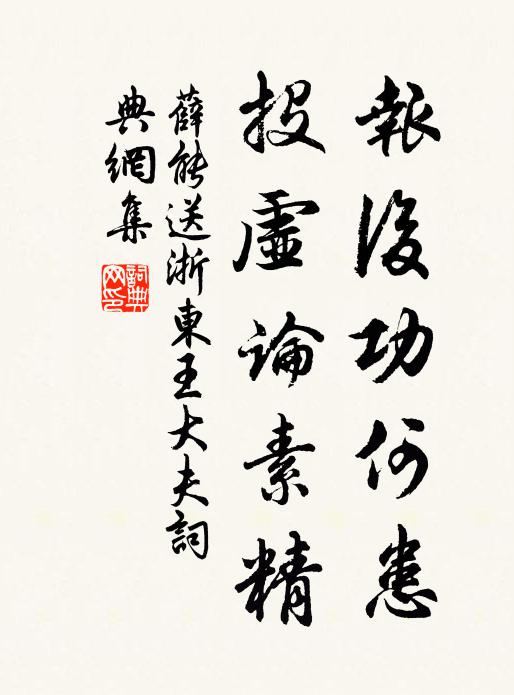 報後功何患
投虛論素精
薛能送浙東王大夫詞
典網集
詞典
网印